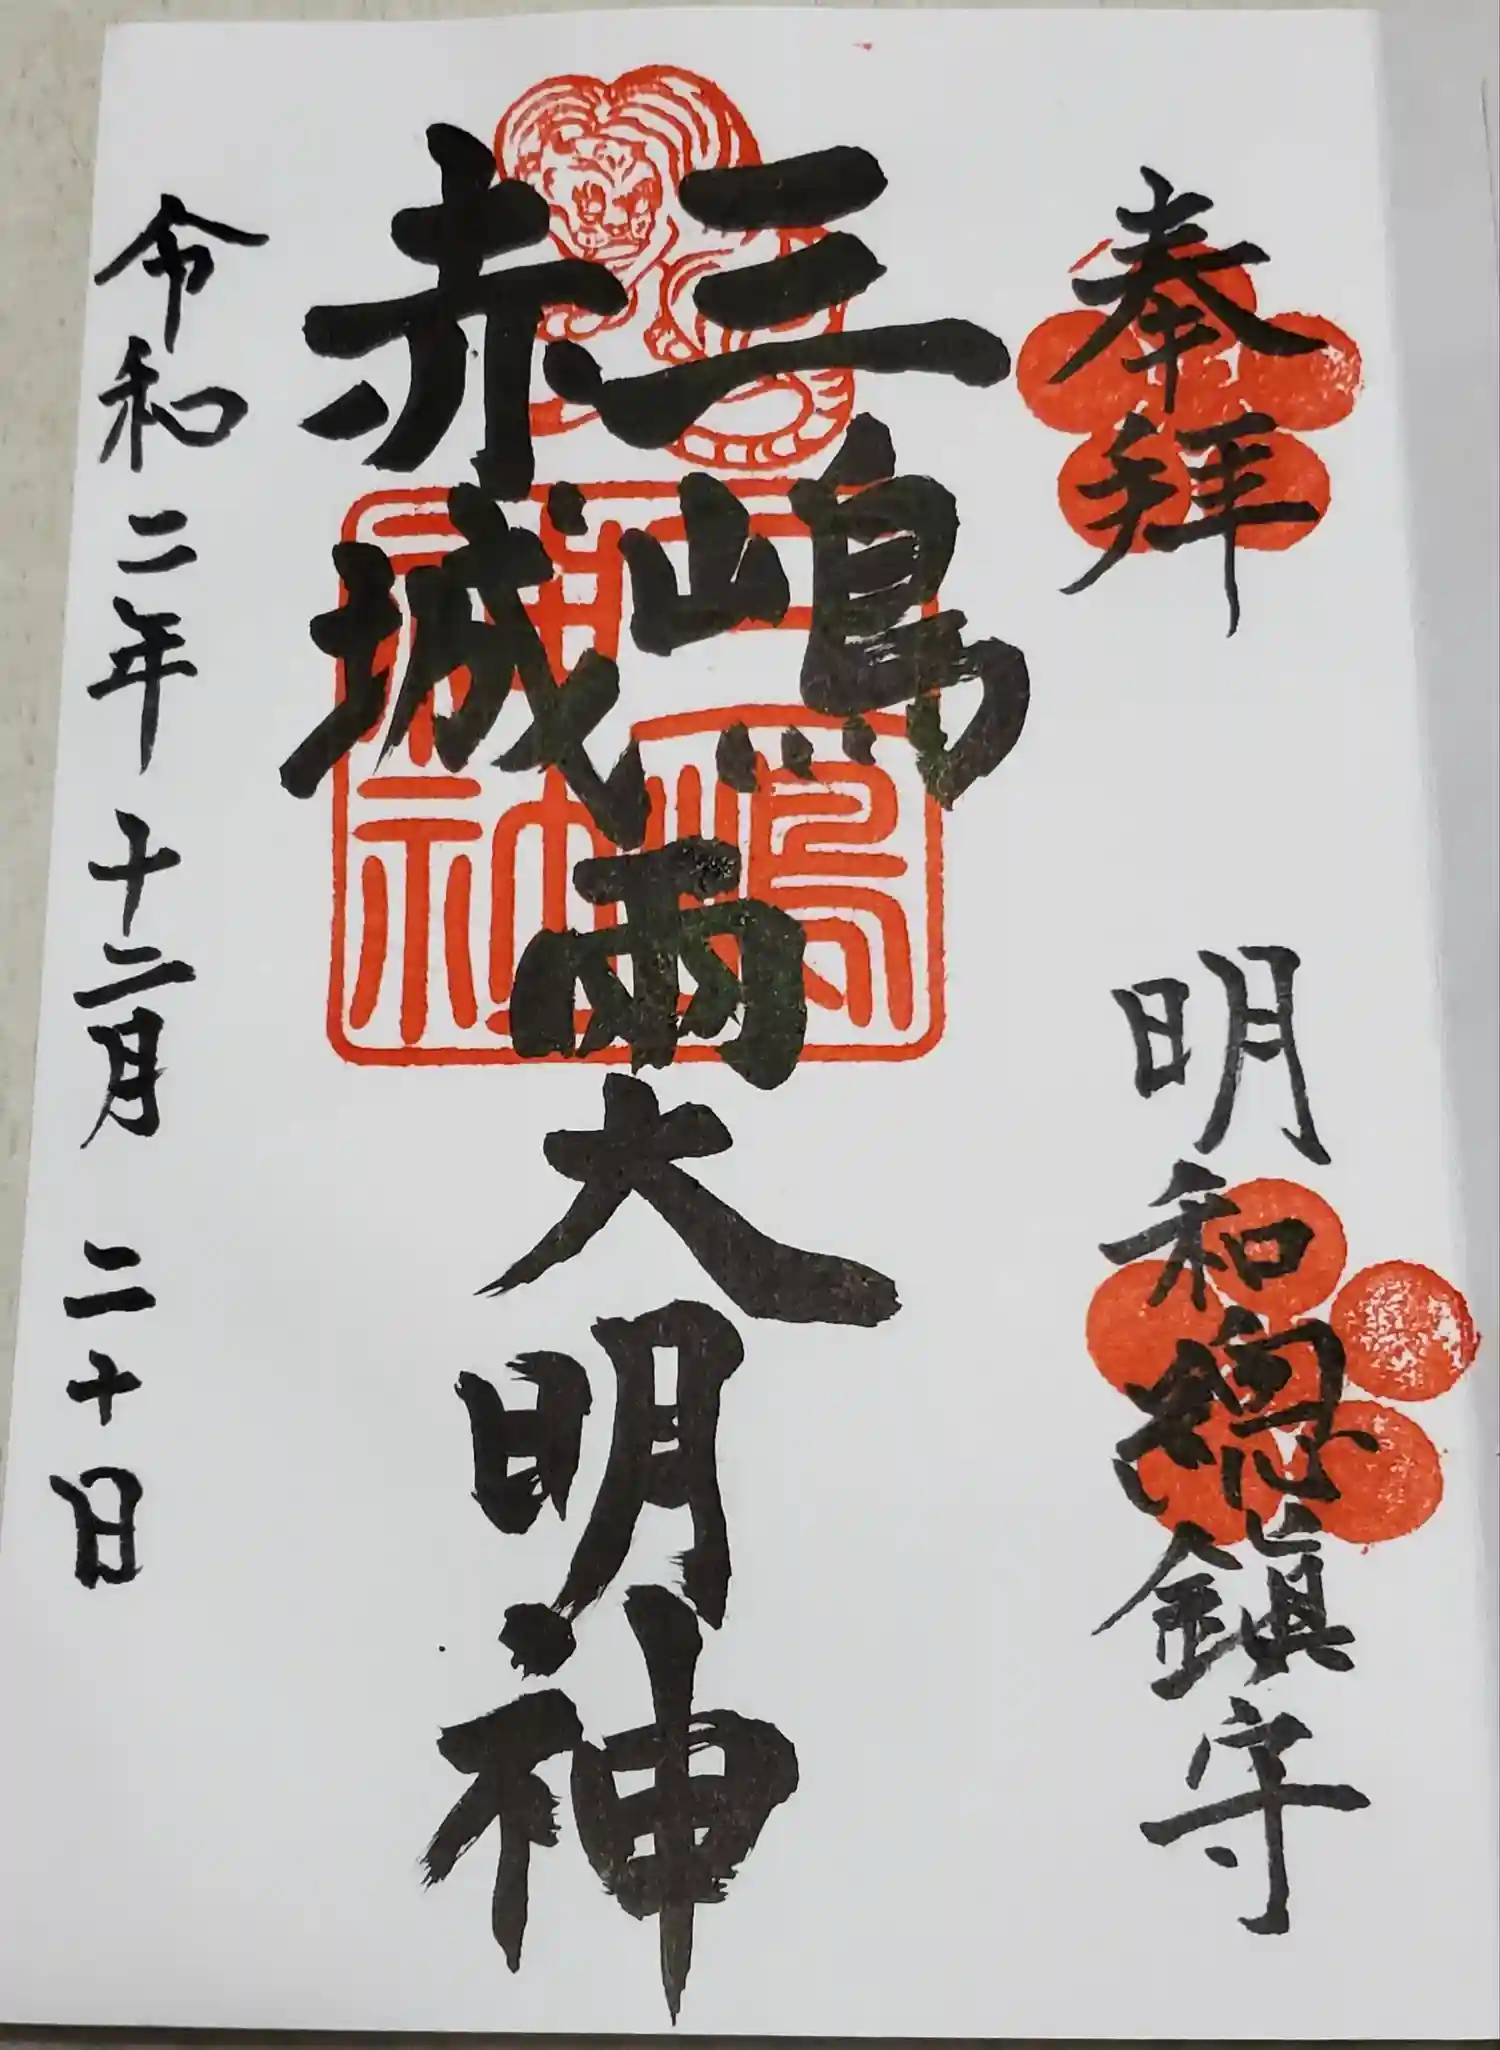 奉拝
明和總鎮守
三嶋
赤城
両大明神
令和二年十二月二十日
三嶋
神社